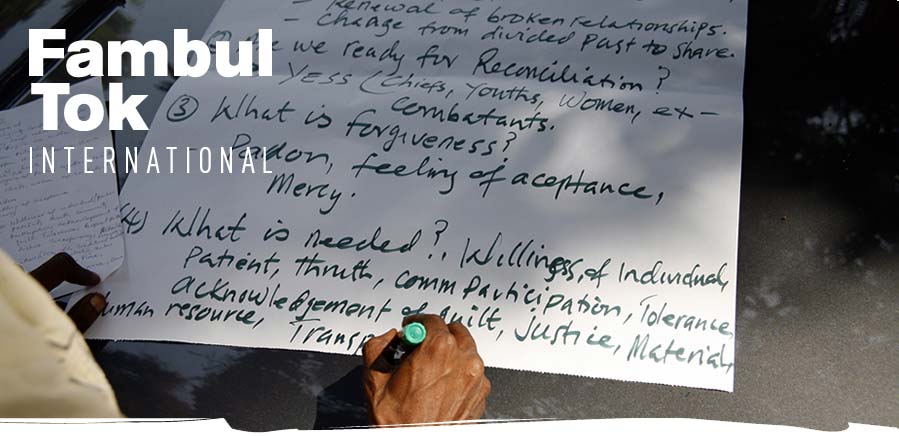 Fambul
Tok
INTERNATIONAL
- Renewal of broken relationships.
- Change from divided past to share.
we ready for Reconciliation?
Yess (Chiefs, Youths, Women, ex-
combatants.
③ What is forgiveness?
- Pardon, feeling of aceptance,
Mercy.
(4) What is needed?.. Willingss, of Individual,
Patient, thruth, comm Participation, Tolerance
acknowledgement of guilt, justice, Material,
Human resource, Transp